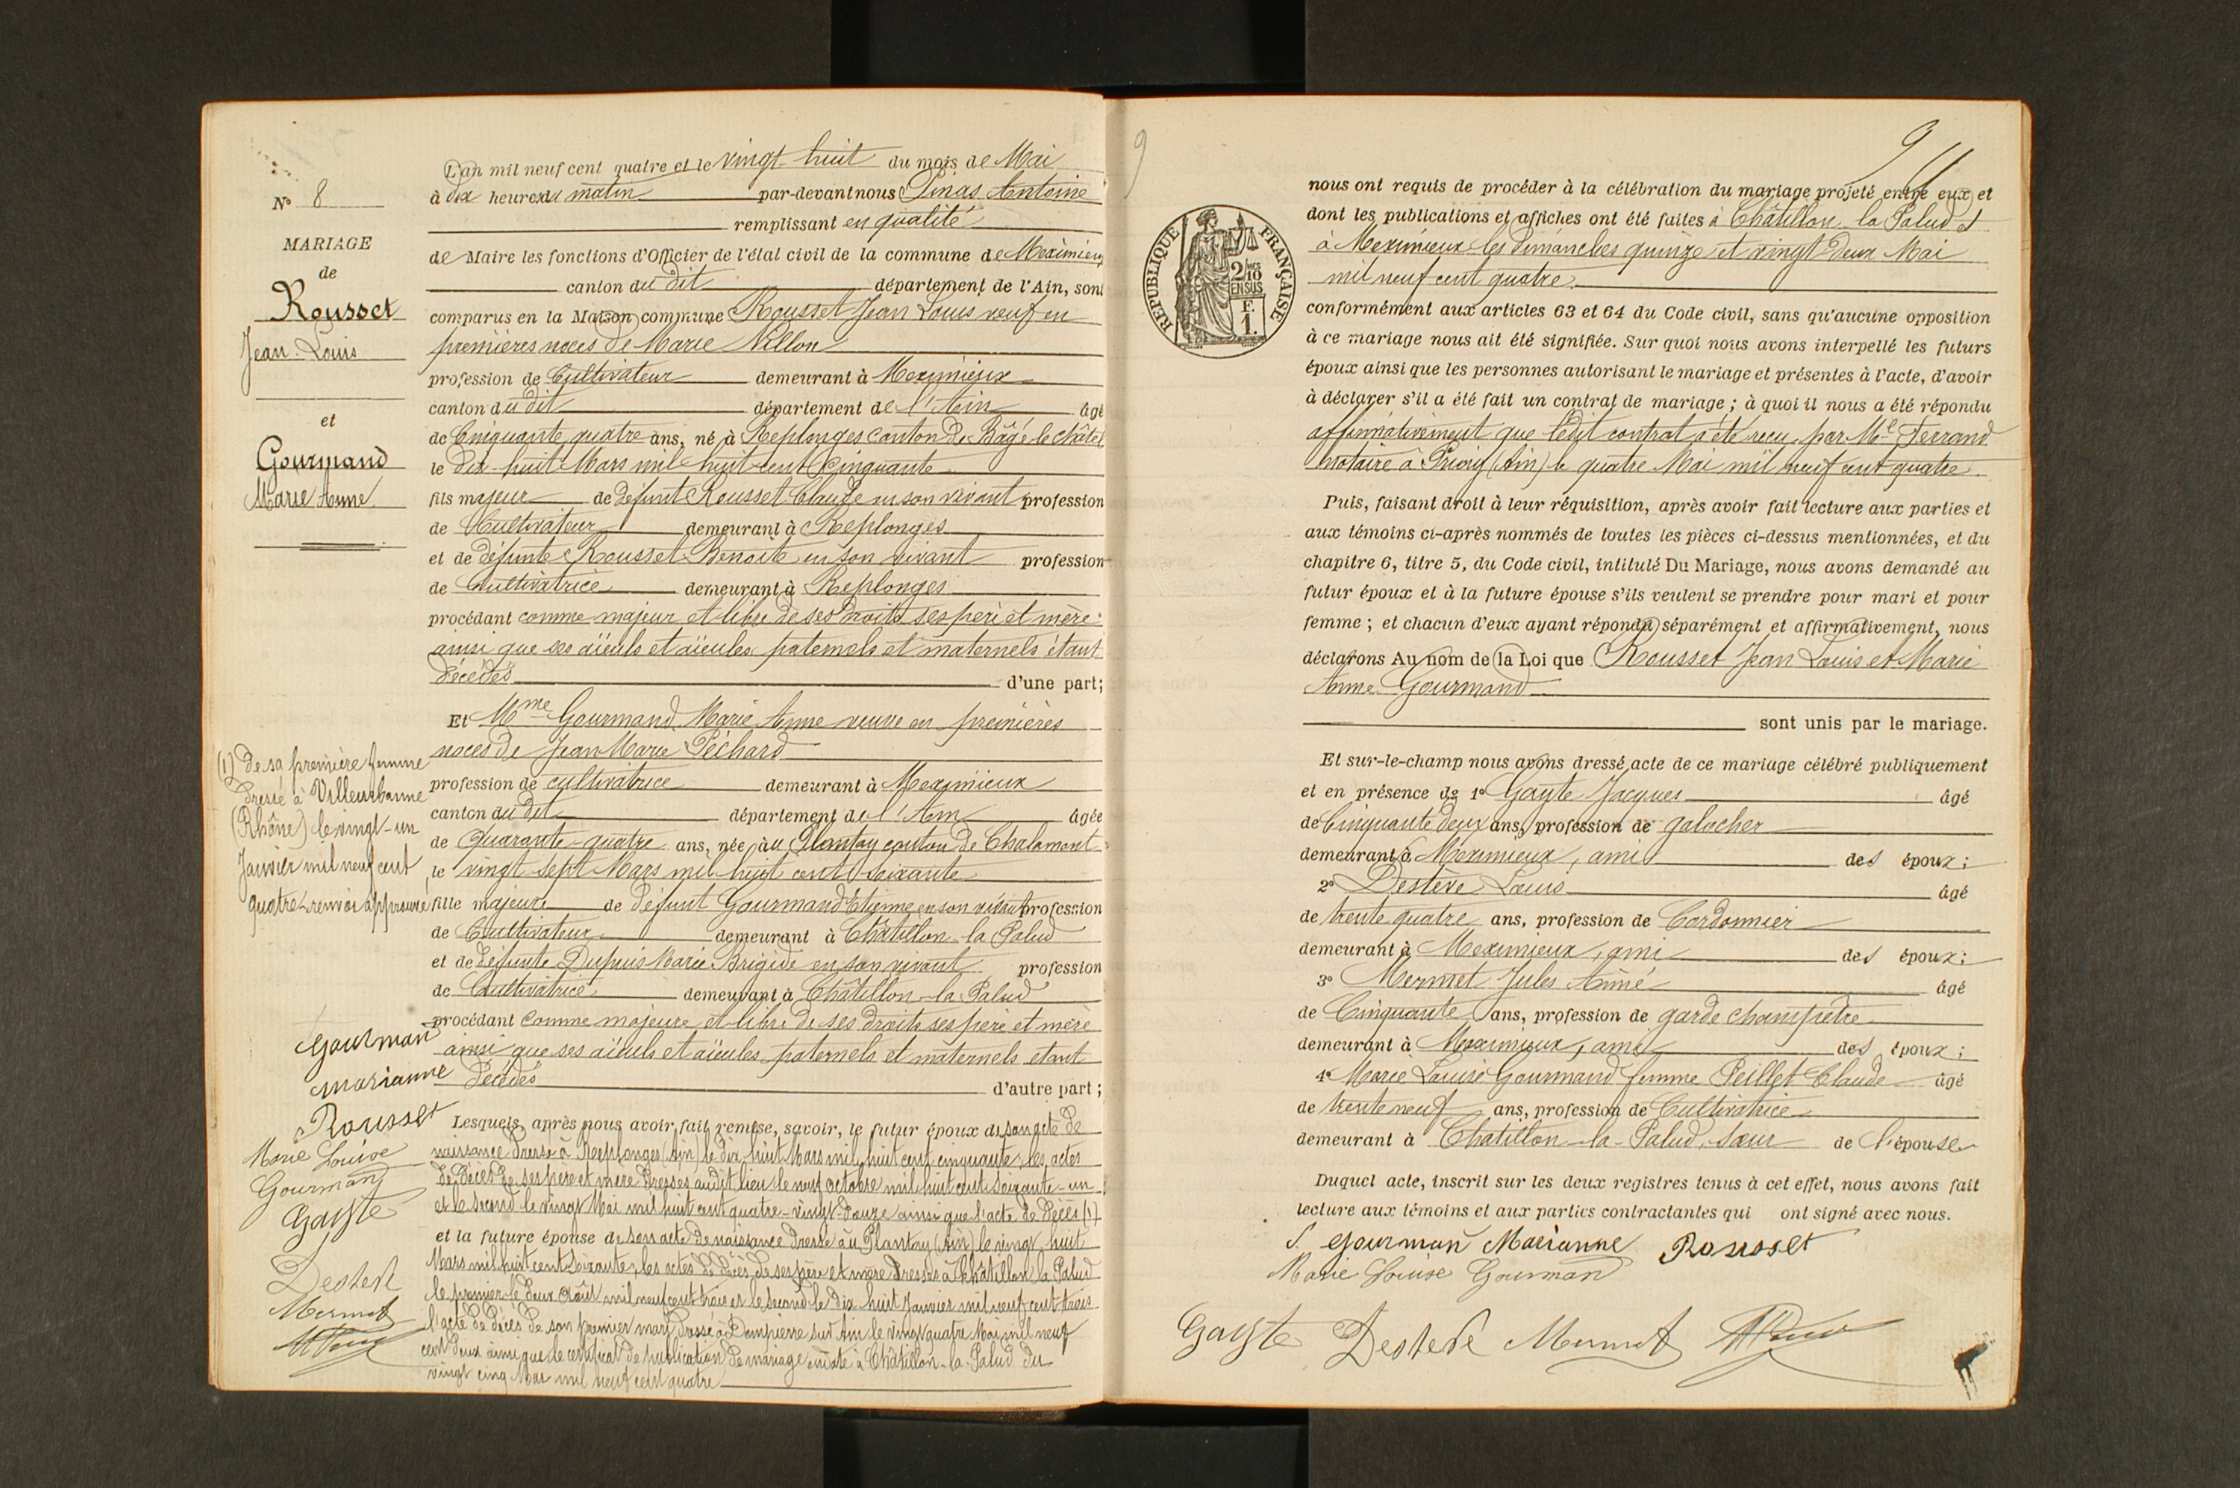 L'an mil neuf cent quatre et le vingt-huit du mois de Mai
à dix heures du matin par-devant nous Pinas Antoine
remplissant en qualité
de Maire les fonctions d'Officier de l'état civil de la commune de Meximieux
canton du dit département de l'Ain, sont
comparus en la Maison commune Rousset Jean Louis veuf en
premières noces de Marie Nillon
profession de Cultivateur demeurant à Meximieux
canton du dit département de l'Ain âgé
de Cinquante quatre ans, né à Replonges canton de Bâgé-le-châtel
le dix-huit Mars mil huit cent cinquante
fils majeur de défunt Rousset Claude en son vivant profession
de Cultivateur demeurant à Replonges
et de défunte Rousset Benoite en son vivant profession
de Cultivatrice demeurant à Replonges
procédant comme majeur et libre de ses droits ses père et mère
ainsi que ses aïeuls et aïeules paternels et maternels étant
décédés d'une part;
Et Mme Gourmand Marie Anne veuve en premières
noces de Jean Marie Péchard
profession de cultivatrice demeurant à Meximieux
canton du dit département de l'Ain âgée
de Quarante-quatre ans, née au Plantay canton de Chalamont
le vingt sept Mars mil huit cent soixante
fille majeure de défunt Gourmand Etienne en son vivant profession
de Cultivateur demeurant à Châtillon-la-Palud
et de défunte Dupuis Marie Brigide en son vivant profession
de Cultivatrice demeurant à Châtillon-la-Palud
procédant comme majeure et libre de ses droits ses père et mère
ainsi que ses aïeuls et aïeules paternels et maternels étant
décédés d'autre part;
Lesquels, après nous avoir fait remise, savoir, le futur époux de son acte de
naissance dressé à Replonges (Ain) le dix huit Mars mil huit cent cinquante, les actes
de décès de ses père et mère dressés au dit lieu le neuf octobre mil huit cent soixante-un
et le second le vingt Mai mil huit cent quatre-vingt-douze ainsi que l'acte de décès (1)
et la future épouse de son acte de naissance dressé au Plantay (Ain) le vingt huit
Mars mil huit cent soixante, les actes de décès de ses père et mère dressés à Châtillon la Palud
le premier le deux Août mil neuf cent trois et le second le dix huit Janvier mil neuf cent trois
l'acte de décès de son premier mari dressé à Dompierre sur Ain le vingt quatre Mai mil neuf
cent deux ainsi que le certificat de publication de mariage en date à Châtillon-la-Palud du
vingt cinq Mai mil neuf cent quatre
N° 8
MARIAGE
de
Rousset
Jean-Louis
et
Gourmand
Marie Anne
(1) de sa première femme
dressé à Villeurbanne
(Rhône) le vingt-un
Janvier mil neuf cent
quatre, renvoi approuvé
gourman
marianne
Rousset
Marie Louise
Gourmand
Gayte
Destere
Mermet
9
9
REPUBLIQUE FRANÇAISE
2/10
EN SUS
F.
1.
nous ont requis de procéder à la célébration du mariage projeté entre eux et
dont les publications et affiches ont été faites à Châtillon-la-Palud et
à Meximieux les Dimanches quinze et vingt deux Mai
mil neuf cent quatre
conformément aux articles 63 et 64 du Code civil, sans qu'aucune opposition
à ce mariage nous ait été signifiée. Sur quoi nous avons interpellé les futurs
époux ainsi que les personnes autorisant le mariage et présentes à l'acte, d'avoir
à déclarer s'il a été fait un contrat de mariage; à quoi il nous a été répondu
affirmativement que ledit contrat a été reçu par Me Ferrand
notaire à Priay (Ain) le quatre Mai mil neuf cent quatre
Puis, faisant droit à leur réquisition, après avoir fait lecture aux parties et
aux témoins ci-après nommés de toutes les pièces ci-dessus mentionnées, et du
chapitre 6, titre 5, du Code civil, intitulé Du Mariage, nous avons demandé au
futur époux et à la future épouse s'ils veulent se prendre pour mari et pour
femme; et chacun d'eux ayant répondu séparément et affirmativement, nous
déclarons Au nom de la Loi que Rousset Jean Louis et Marie
Anne Gourmand
sont unis par le mariage.
Et sur-le-champ nous avons dressé acte de ce mariage célébré publiquement
et en présence de 1° Gayte Jacques âgé
de Cinquante deux ans, profession de galocher
demeurant à Meximieux, ami des époux;
2° Destère Louis âgé
de trente quatre ans, profession de Cordonnier
demeurant à Meximieux, ami des époux;
3° Mermet Jules Aimé âgé
de Cinquante ans, profession de garde champêtre
demeurant à Meximieux, ami des époux;
4° Marie Louise Gourmand femme Peillet Claude âgé
de trente neuf ans, profession de Cultivatrice
demeurant à Chatillon-la-Palud, sœur de l'épouse
Duquel acte, inscrit sur les deux registres tenus à cet effet, nous avons fait
lecture aux témoins et aux parties contractantes qui ont signé avec nous.
gourman Marianne Rousset
Marie Louise Gourmand
Gayte Destere Mermet